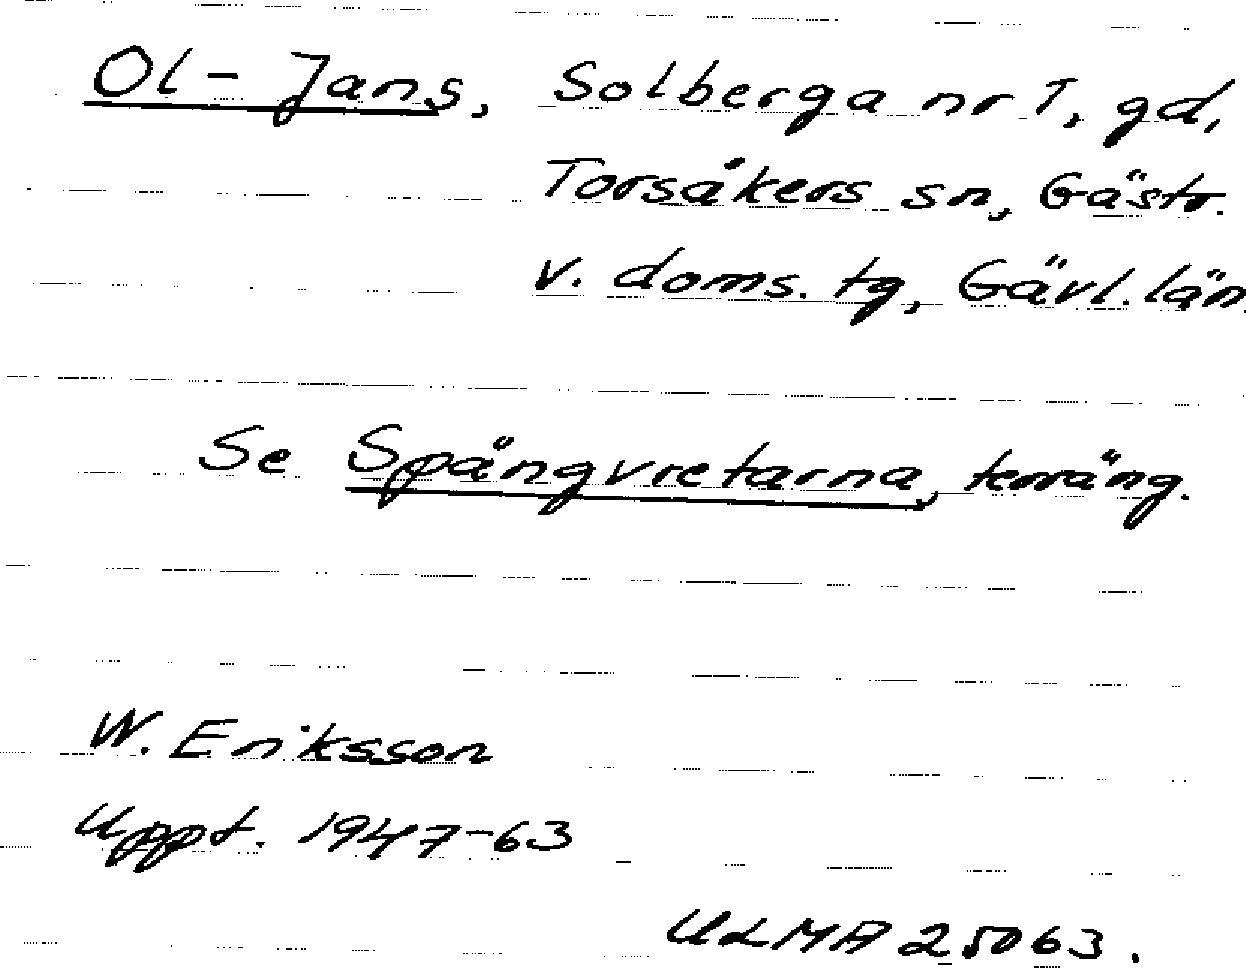 Ol-Jans, Solberga nr 1, gd,
Torsåkers sn, Gästr.
v. doms. tg, Gävl. län
Se Spängvretarna, terräng.
W. Eriksson
Uppt. 1947-63
ULMA 25063.